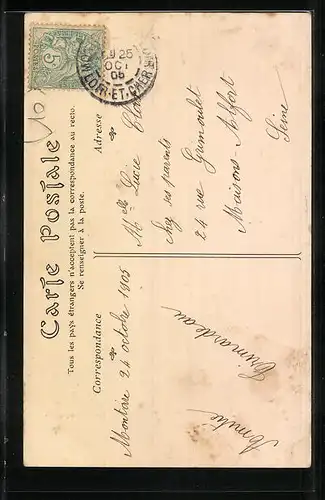 Carte Postale
Tous les pays étrangers n'acceptent pas la correspondance au recto.
Se renseigner à la poste.
Correspondance
Adresse
Montoire 24 octobre 1905
Amitié
M elle Lucie
chez ses parents
24 rue Grimoulet
Maisons-Alfort
Seine
25
OCT
05
LOIR-ET-CHER
5
10